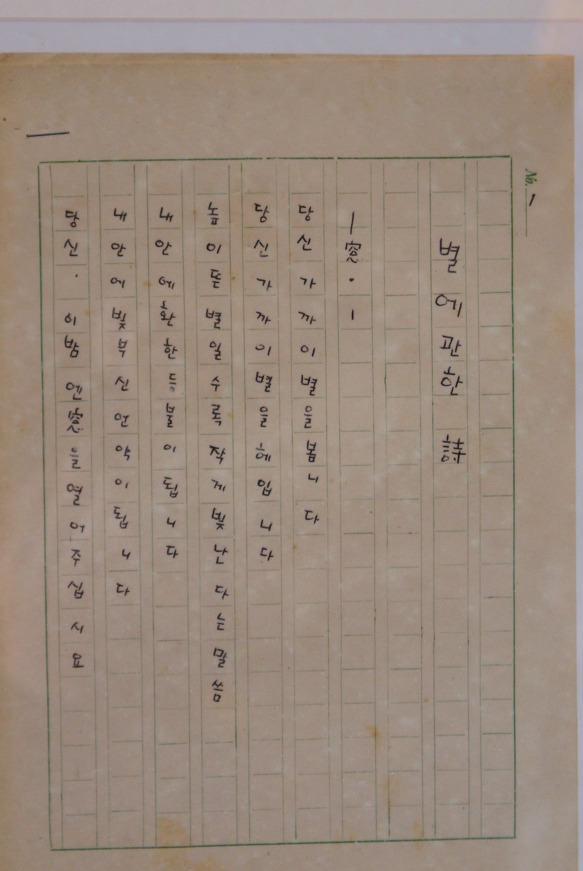 No. 1
별에 관한 詩
—窓·1
당신 가까이 별을 봅니다
당신 가까이 별을 헤입니다
높이 뜬 별일수록 작게 빛난다는 말씀
내 안에 환한 등불이 됩니다
내 안에 빛부신 언약이 됩니다
당신· 이 밤엔 窓을 열어주십시요